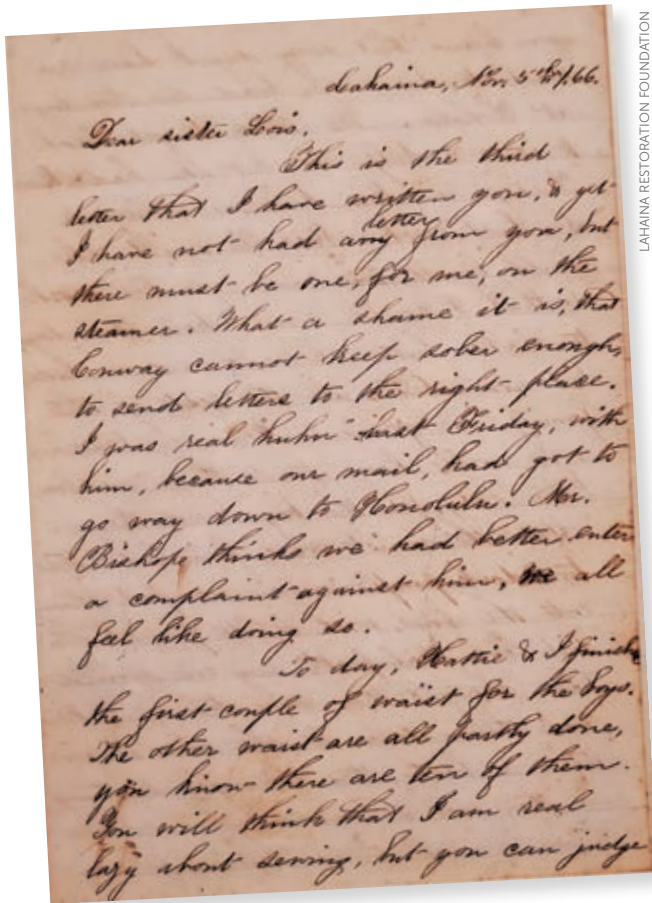 Lahaina, Nov. 5th/66.
Dear sister Lois,
This is the third
letter that I have written you, & yet
letter
I have not had any from you, but
there must be one, for me, on the
steamer. What a shame it is, that
Conway cannot keep sober enough,
to send letters to the right place.
I was real huhu last Friday, with
him, because our mail, had got to
go way down to Honolulu. Mr.
Bishop thinks we had better enter
a complaint against him, we all
feel like doing so.
To day, Hattie & I finish
the first couple of waist for the boys.
The other waist are all partly done,
you know there are ten of them.
You will think that I am real
lazy about sewing, but you can judge
LAHAINA RESTORATION FOUNDATION